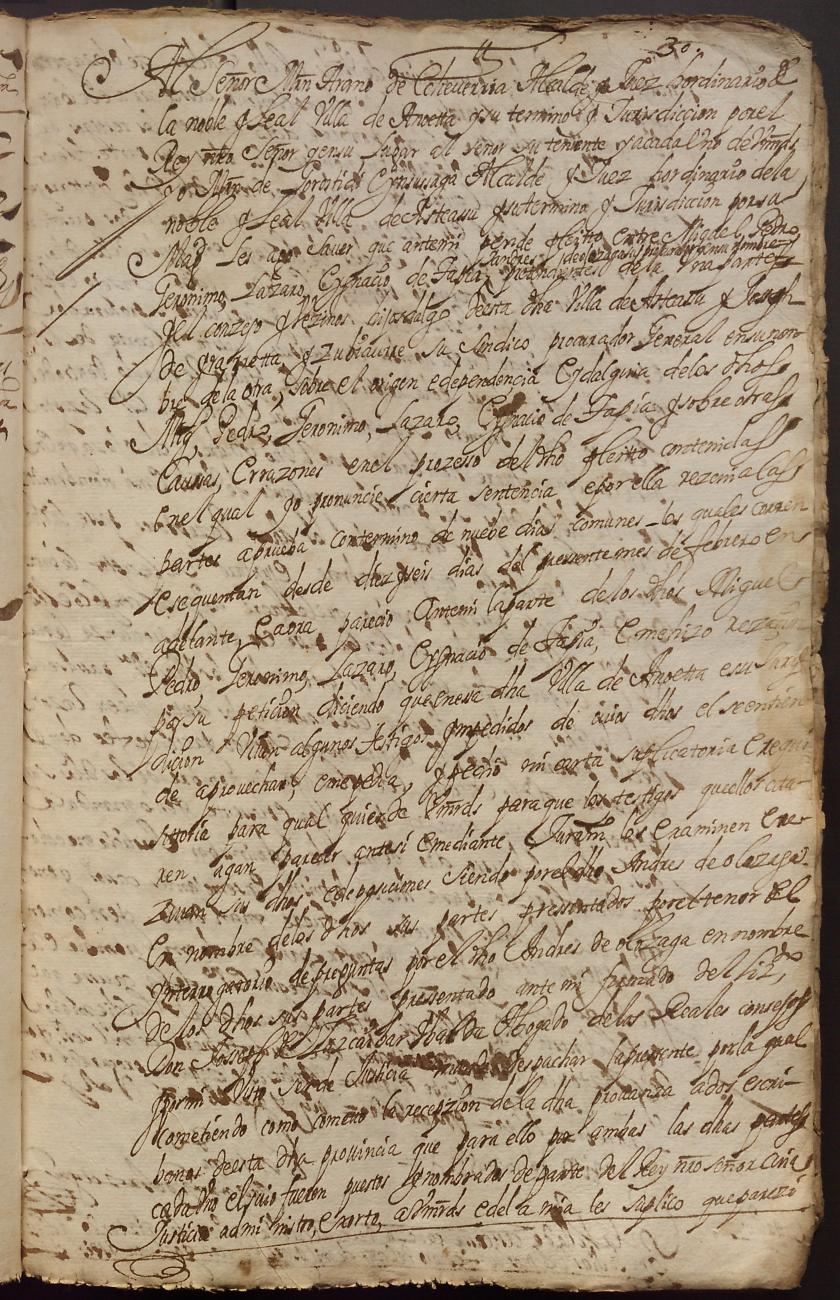 30
Al Señor Mrn Arano de Echeverria Alcalde y Juez hordinario de
la noble y Leal Villa de Anoetta y su termino y Jurisdicion por el
Rey nro Señor y en su lugar al señor su teniente y a cada Uno de Vmrds
Yo Mrn de Cynsusaga Alcalde y Juez hordinario de la
noble y Leal Villa de Asteasu y su termino y Jurisdicion por su
Magd Les ago Saver que antemi pende pleitto entre Miguel, Pedro,
Geronimo, Lazaro, Cygnacio de Fagia, de la Una parte y
Andres de olazaga su procurador en su nombre
y el conzejo y vezinos hijosdalgo de esta dha Villa de Asteasu y Joseph
de yrarretta y Zubiaurre su Sindico procurador General en su nom
bre de la otra, sobre el origen e dependencia Cydalguia de los dhos
Migl, Pedro, Geronimo, Lazaro, Cygnacio de Fagia y sobre otras
Caussas, E rrazones en el prozesso del dho pleitto contenidas
en el qual yo pronuncie cierta sentencia e por ella rezevi a las
partes a prueba con termino de nuebe dias comunes los quales corren
e se quentan desde diez y seis dias del pressente mes de febrero en
adelante, E aora parecio antemi la parte de los dhos Miguel
Pedro, Geronimo, Lazaro, Cygnacio de Fagia, E me hizo
por su peticion diciendo que en essa dha Villa de Anoetta e su Juris
dicion Vian algunos testigos ympedidos de cuios dhos el se entien
de aprovechar, e me pedia, y pedio mi carta suplicatoria E requi
sitoria para qual quier de Vmrds para que los testigos que ellos cita
ren agan parecer ante si e mediante Juramto les examinen E re
zivan sus dhos e depossiciones siendo por el dho Andres de olazaga
en nombre de los dhos sus partes pressentados por el tenor del
ynterrogatorio de preguntas por el dho Andres de olazaga en nombre
de los dhos sus partes pressentado ante mi firmado del Lizdo
Don Josseph de Yzcaibar Abogado de los Reales consejos
y por mi Visto ser de Justicia mande despachar la pressente por la qual
cometiendo como cometo la recepzion de la dha provanza a dos escri
banos de esta dha provincia que para ello por ambas las dhas partes
cada Uno el suio fueren puestos y nombrados de parte del Rey nro señor cuia
Justicia admi nistro, exorto, a Vmrds e de la mia les suplico que parezi